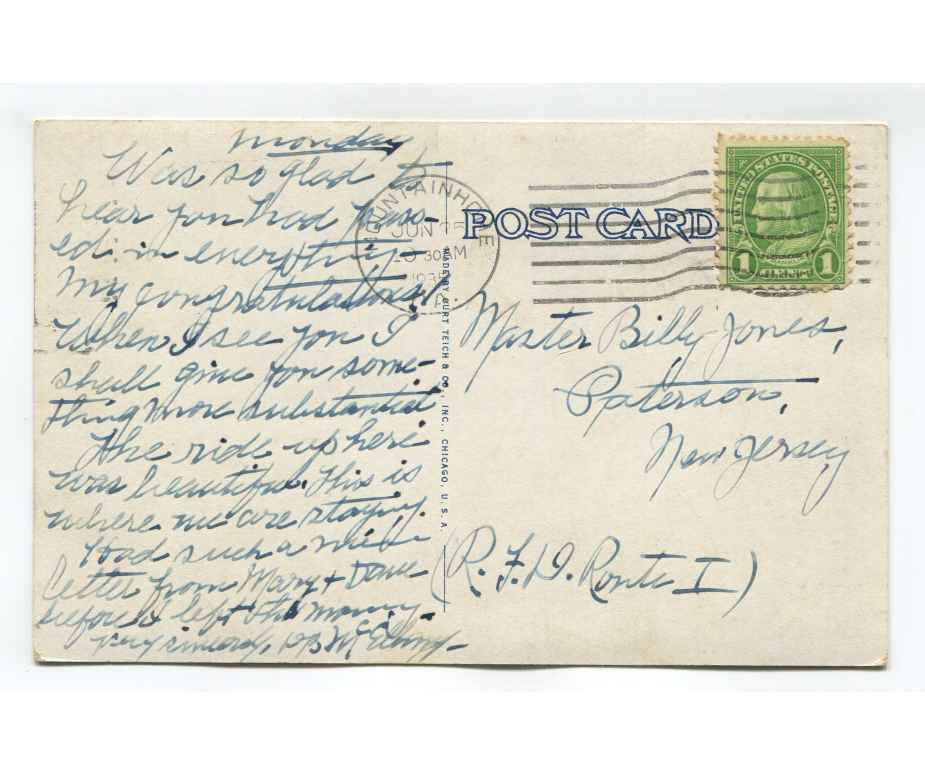 Monday
Was so glad to
hear you had pass-
ed in everything.
My congratulations,
When I see you I
shall give you some-
thing more substantial
The ride up here
was beautiful. This is
where we are staying.
Had such a nice
letter from Mary + Dave
before I left this morning.
Very sincerely,
MOUNTAINHOME
JUN 25
10 30AM
1935
PA
MADE BY CURT TEICH & CO., INC., CHICAGO, U.S.A.
POST CARD
UNITED STATES POSTAGE
1 1
Master Billy Jones,
Paterson,
New Jersey
(R.F.D. Route I)